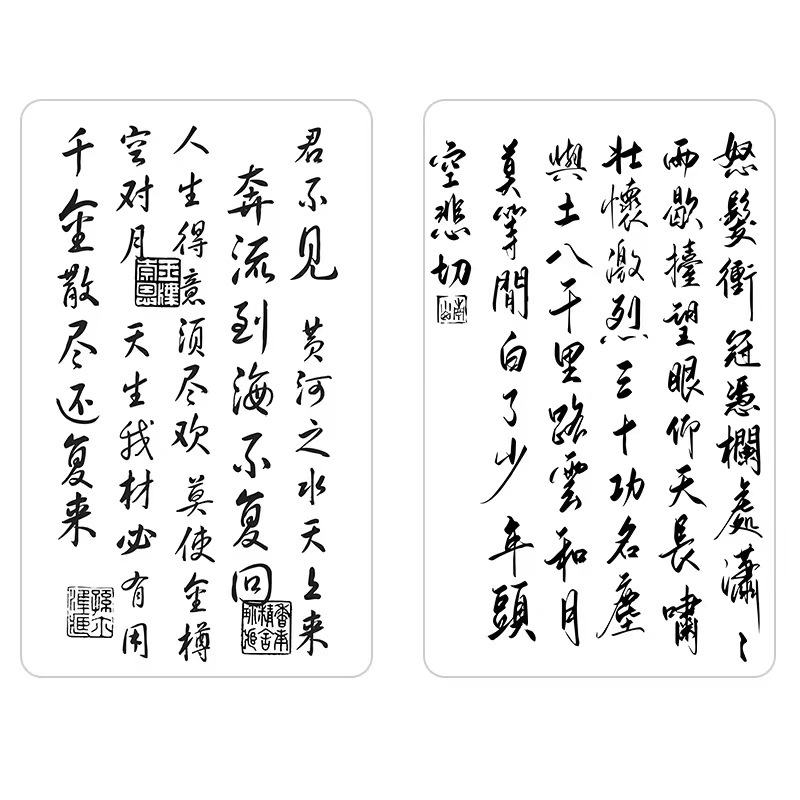 君不见 黄河之水天上来
奔流到海不复回
人生得意须尽欢 莫使金樽
空对月 天生我材必有用
千金散尽还复来
怒髮衝冠憑欄處瀟〻
雨歇擡望眼仰天長嘯
壯懷激烈三十功名塵
與土八千里路雲和月
莫等間白了少年頭
空悲切